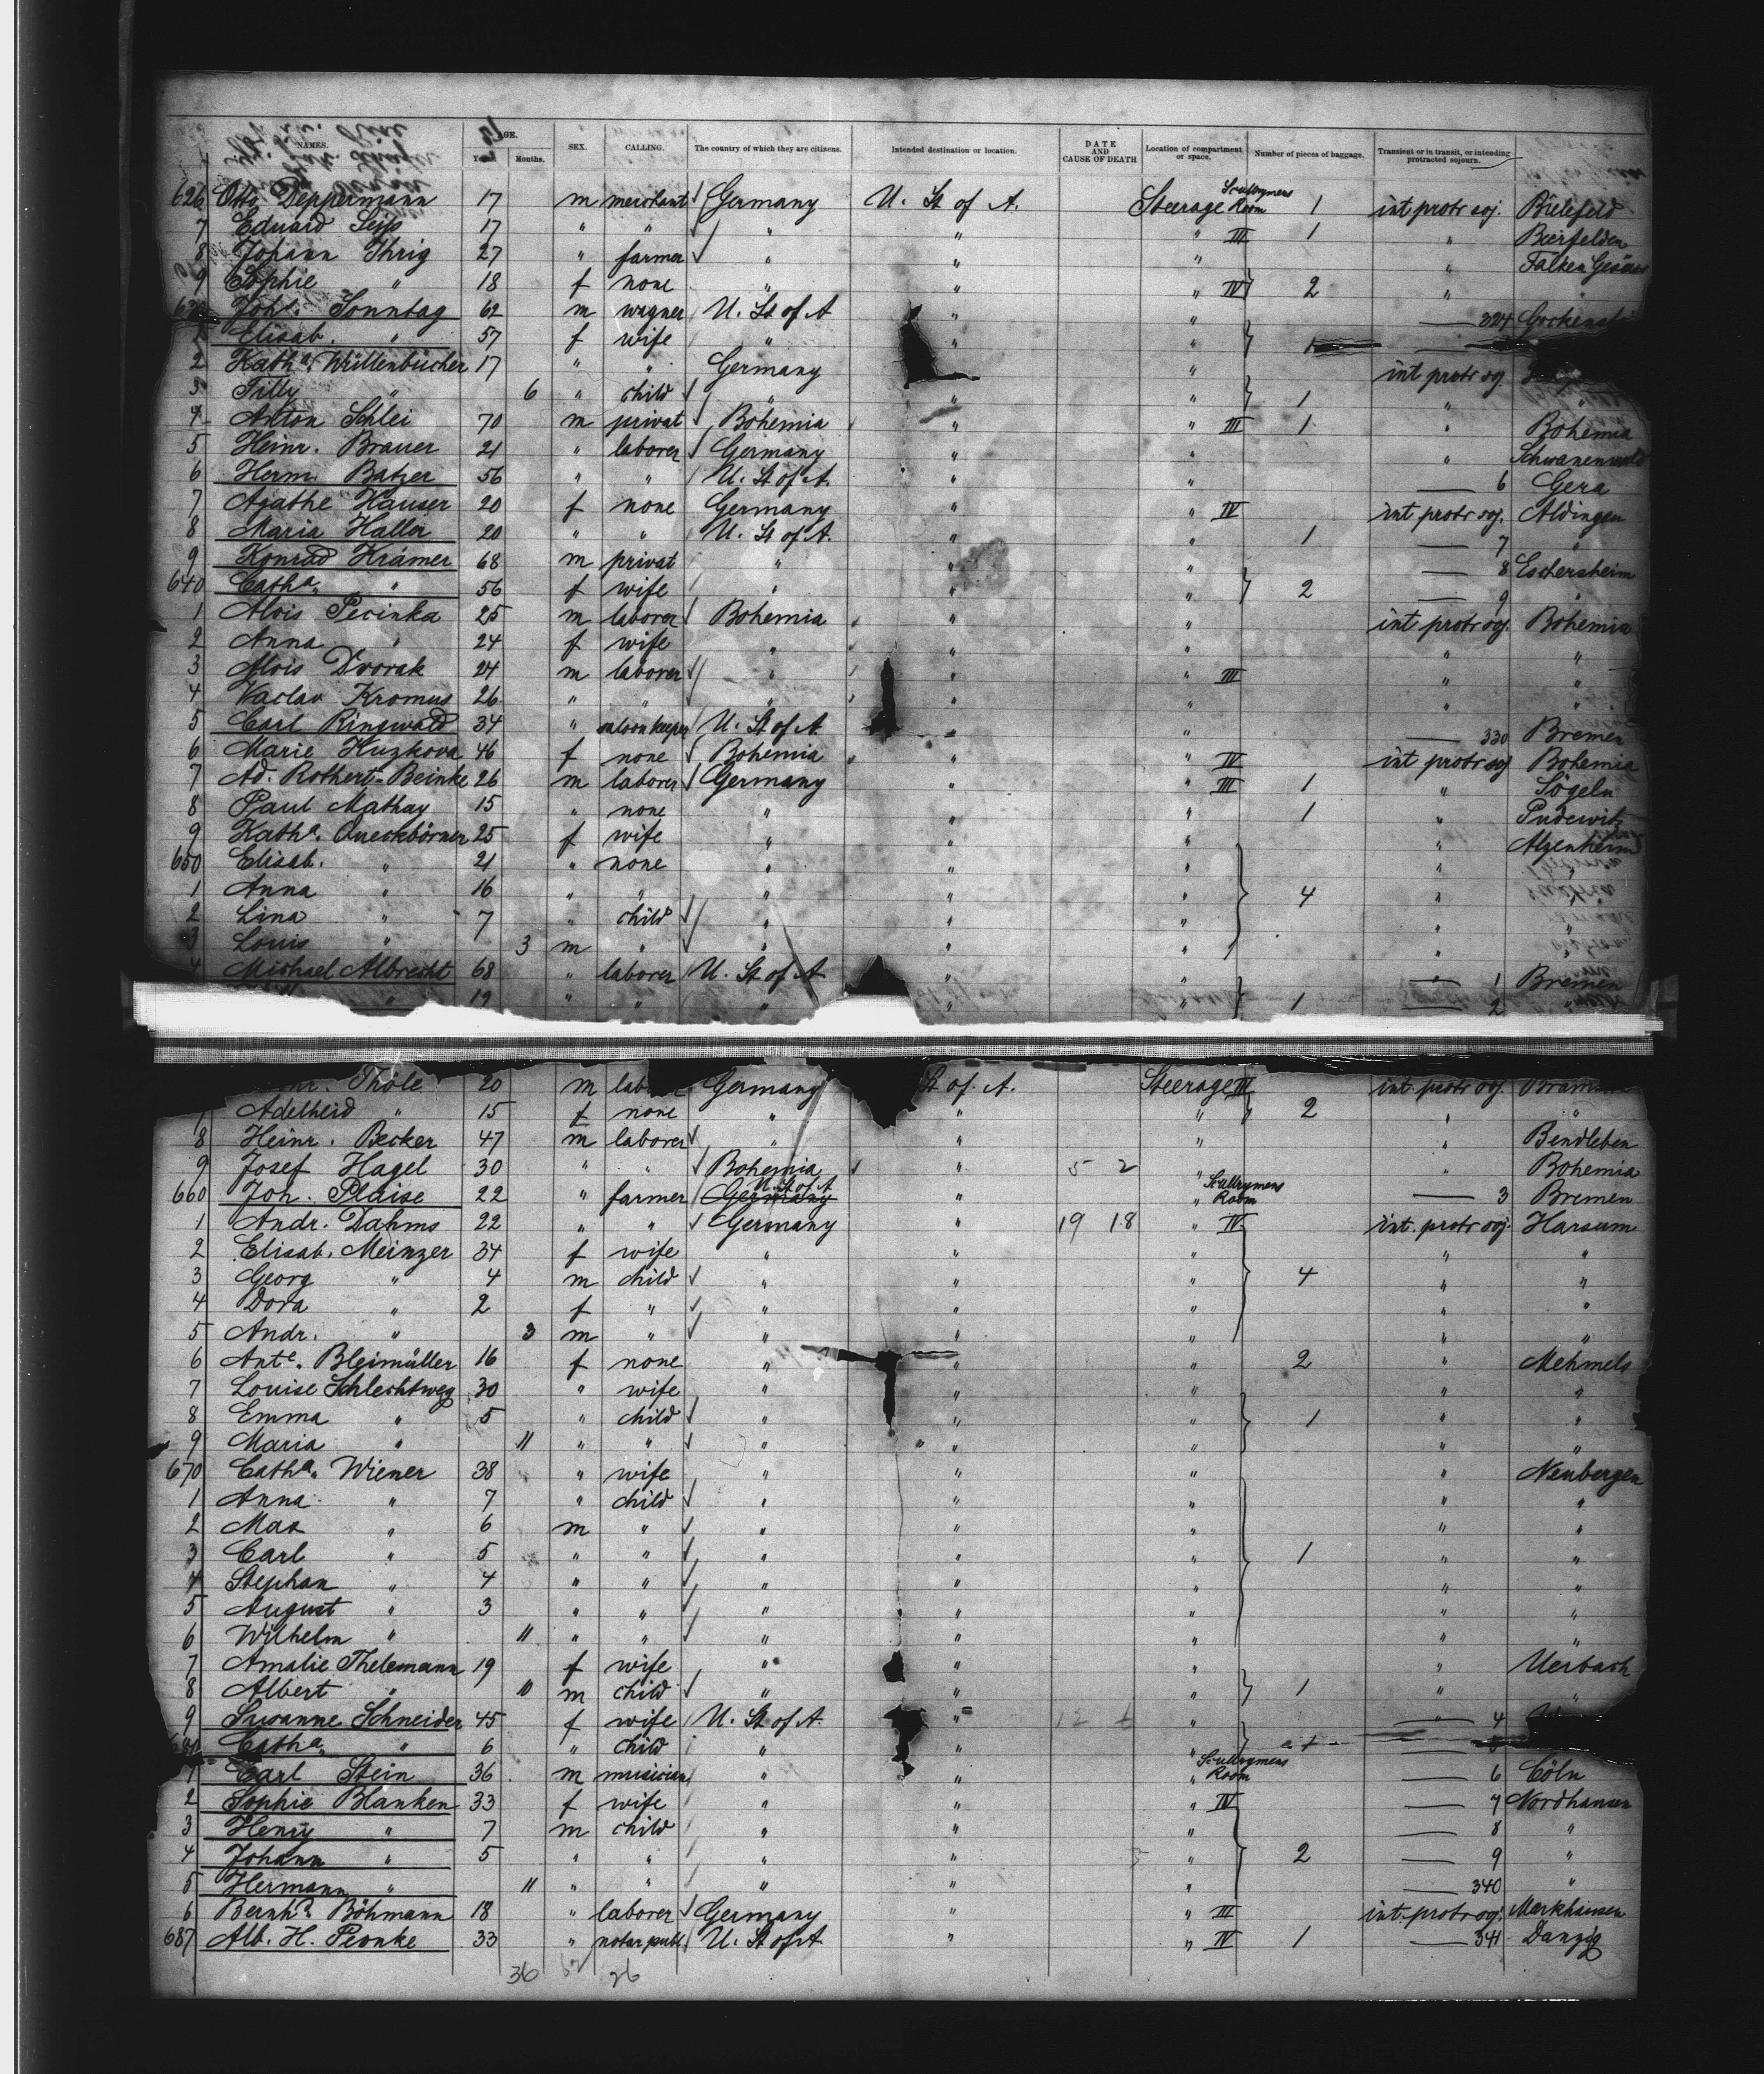 NAMES. AGE. Years Months. SEX. CALLING. The country of which they are citizens. Intended destination or location. DATE AND CAUSE OF DEATH Location of compartment or space. Number of pieces of baggage. Transient or in transit, or intending protracted sojourn.
626 Otto Deppermann 17 m merchant Germany U. St of A. Steerage Scullrymens Room 1 int protr soj. Bielefeld
7 Eduard 17 " " " " " III 1 " Beerfelden
8 Johann Ihrig 27 " farmer " " " " Falken Gesäss
9 Sophie " 18 f none " " " IV 2 "
Joh. Sonntag 62 m wagner U. St of A " " 324
1 Elisab. " 57 f wife " " "
2 Katha. Wüllenbücher 17 " " Germany " int protr soj.
3 Tilly " 6 " child " " " 1 " "
4 Anton Schlei 70 m privat Bohemia " " III 1 " Bohemia
5 Heinr. Brauer 21 " laborer Germany " " "
6 Herm. Batzer 56 " " U. St of A. " " 6 Gera
7 Agathe Hauser 20 f none Germany " " IV int protr soj. Aldingen
8 Maria Haller 20 " " U. St of A. " " 1 7 "
9 Konrad Krämer 68 m privat " " " 8 Eschersheim
640 Catha. " 56 f wife " " " 2 9 "
1 Alois Pecinka 25 m laborer Bohemia " " int protr soj. Bohemia
2 Anna " 24 f wife " " " " "
3 Alois Dvorak 24 m laborer " " " III " "
4 Vaclav Kromus 26 " " " " " " "
5 Carl Ringwald 34 " saloonkeeper U. St of A " " 330 Bremen
6 Marie Huzkova 46 f none Bohemia " " IV int protr soj Bohemia
7 Ad. Rothert-Beinke 26 m laborer Germany " " III 1 " Sögeln
8 Paul Mathay 15 " none " " " 1 " Pudewitz
9 Katha. Queckbörner 25 f wife " " " " Alzenheim
650 Elisab. " 21 " none " " " " "
1 Anna " 16 " " " " " 4 " "
2 Lina " 7 " child " " " " "
3 Louis " 3 m " " " " " "
4 Michael Albrecht 68 " laborer U. St of A " " 1 Bremen
" 19 " " " " " 1 2 "
Thole 20 m Germany St of A. Steerage III int protr soj.
7 Adelheid " 15 f none " " " 2 " "
8 Heinr. Becker 47 m laborer " " " " Bendleben
9 Josef Hagel 30 " " Bohemia " 5 2 " " Bohemia
660 Joh. Plaise 22 " farmer Germany U. St of A " " Scullrymens Room 3 Bremen
1 Andr. Dahms 22 " " Germany " 19 18 " IV int. protr soj. Harsum
2 Elisab. Meinzer 34 f wife " " " " "
3 Georg " 4 m child " " " 4 " "
4 Dora " 2 f " " " " " "
5 Andr. " 3 m " " " " " "
6 Ante. Bleimüller 16 f none " " " 2 " Mehmels
7 Louise Schlechtweg 30 " wife " " " " "
8 Emma " 5 " child " " " 1 " "
9 Maria " 11 " " " " " " "
670 Catha. Wiener 38 " wife " " " " Neubergen
1 Anna " 7 " child " " " " "
2 Max " 6 m " " " " " "
3 Carl " 5 " " " " " 1 " "
4 Stephan " 4 " " " " " " "
5 August " 3 " " " " " " "
6 Wilhelm " 11 " " " " " " "
7 Amalie Thelemann 19 f wife " " " " Uerbach
8 Albert " 10 m child " " " 1 " "
9 Susanne Schneider 45 f wife U. St of A. " 12 6 " 4
Catha. " 6 " child " " " 5
1 Carl Stein 36 m musician " " " Scullrymens Room 6 Cöln
2 Sophie Blanken 33 f wife " " " IV 7 Nordhausen
3 Henry " 7 m child " " " 8 "
4 Johann " 5 " " " " " 2 9 "
5 Hermann " 11 " " " " " 340 "
6 Bernhd. Böhmann 18 " laborer Germany " " III int. protr soj. Markhausen
687 Alb. H. Pionke 33 " notar publ. U. St of A " " IV 1 341 Danzig
36 26